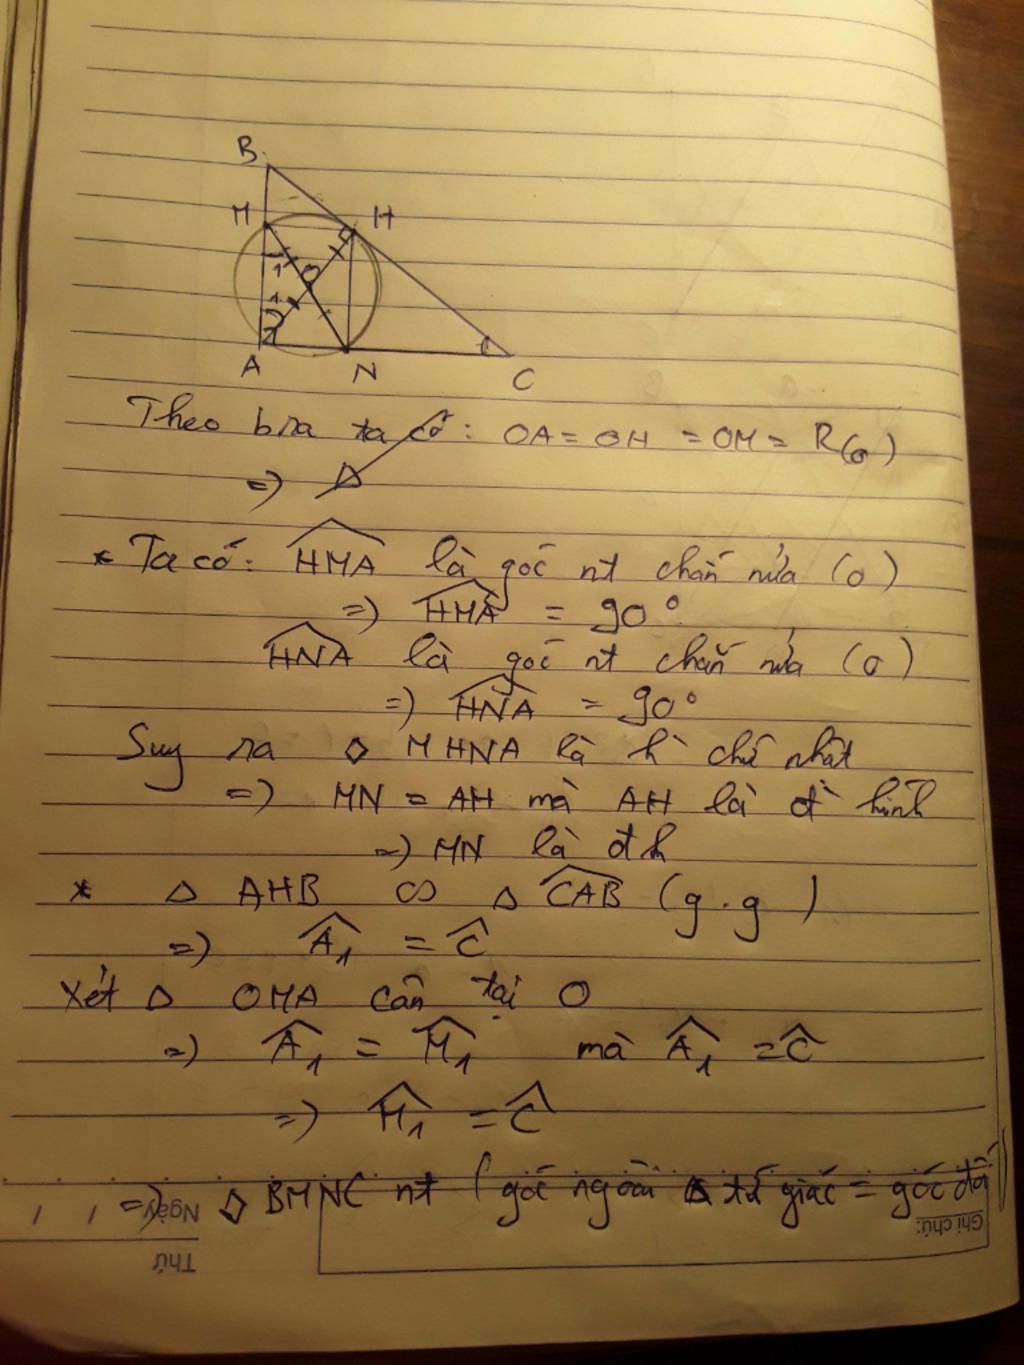 B
M
H
1
O
1
2
A
N
C
Theo bra ta có: OA = OH = OM = R(O)
=) Δ
* Ta có: HMA là góc nt chắn nửa (O)
=) HMA = 90°
HNA là góc nt chắn nửa (O)
=) HNA = 90°
Suy ra ◇ MHNA là h chữ nhật
=) MN = AH mà AH là đ kính
=) MN là đk
* Δ AHB ∽ Δ CAB (g.g)
=) Â₁ = Ĉ
Xét Δ OMA cân tại O
=) Â₁ = M̂₁ mà Â₁ = Ĉ
=) M̂₁ = Ĉ
=) ◇ BMNC nt (góc ngoài tứ giác = góc đối)
Ngày / /
Ghi chú:
Thứ